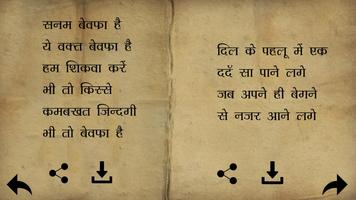 सनम बेवफा है
ये वक्त बेवफा है
हम शिकवा करें
भी तो किस्से
कमबखत जिन्दगी
भी तो बेवफा है
दिल के पहलू में एक
दर्द सा पाने लगे
जब अपने ही बेगने
से नजर आने लगे